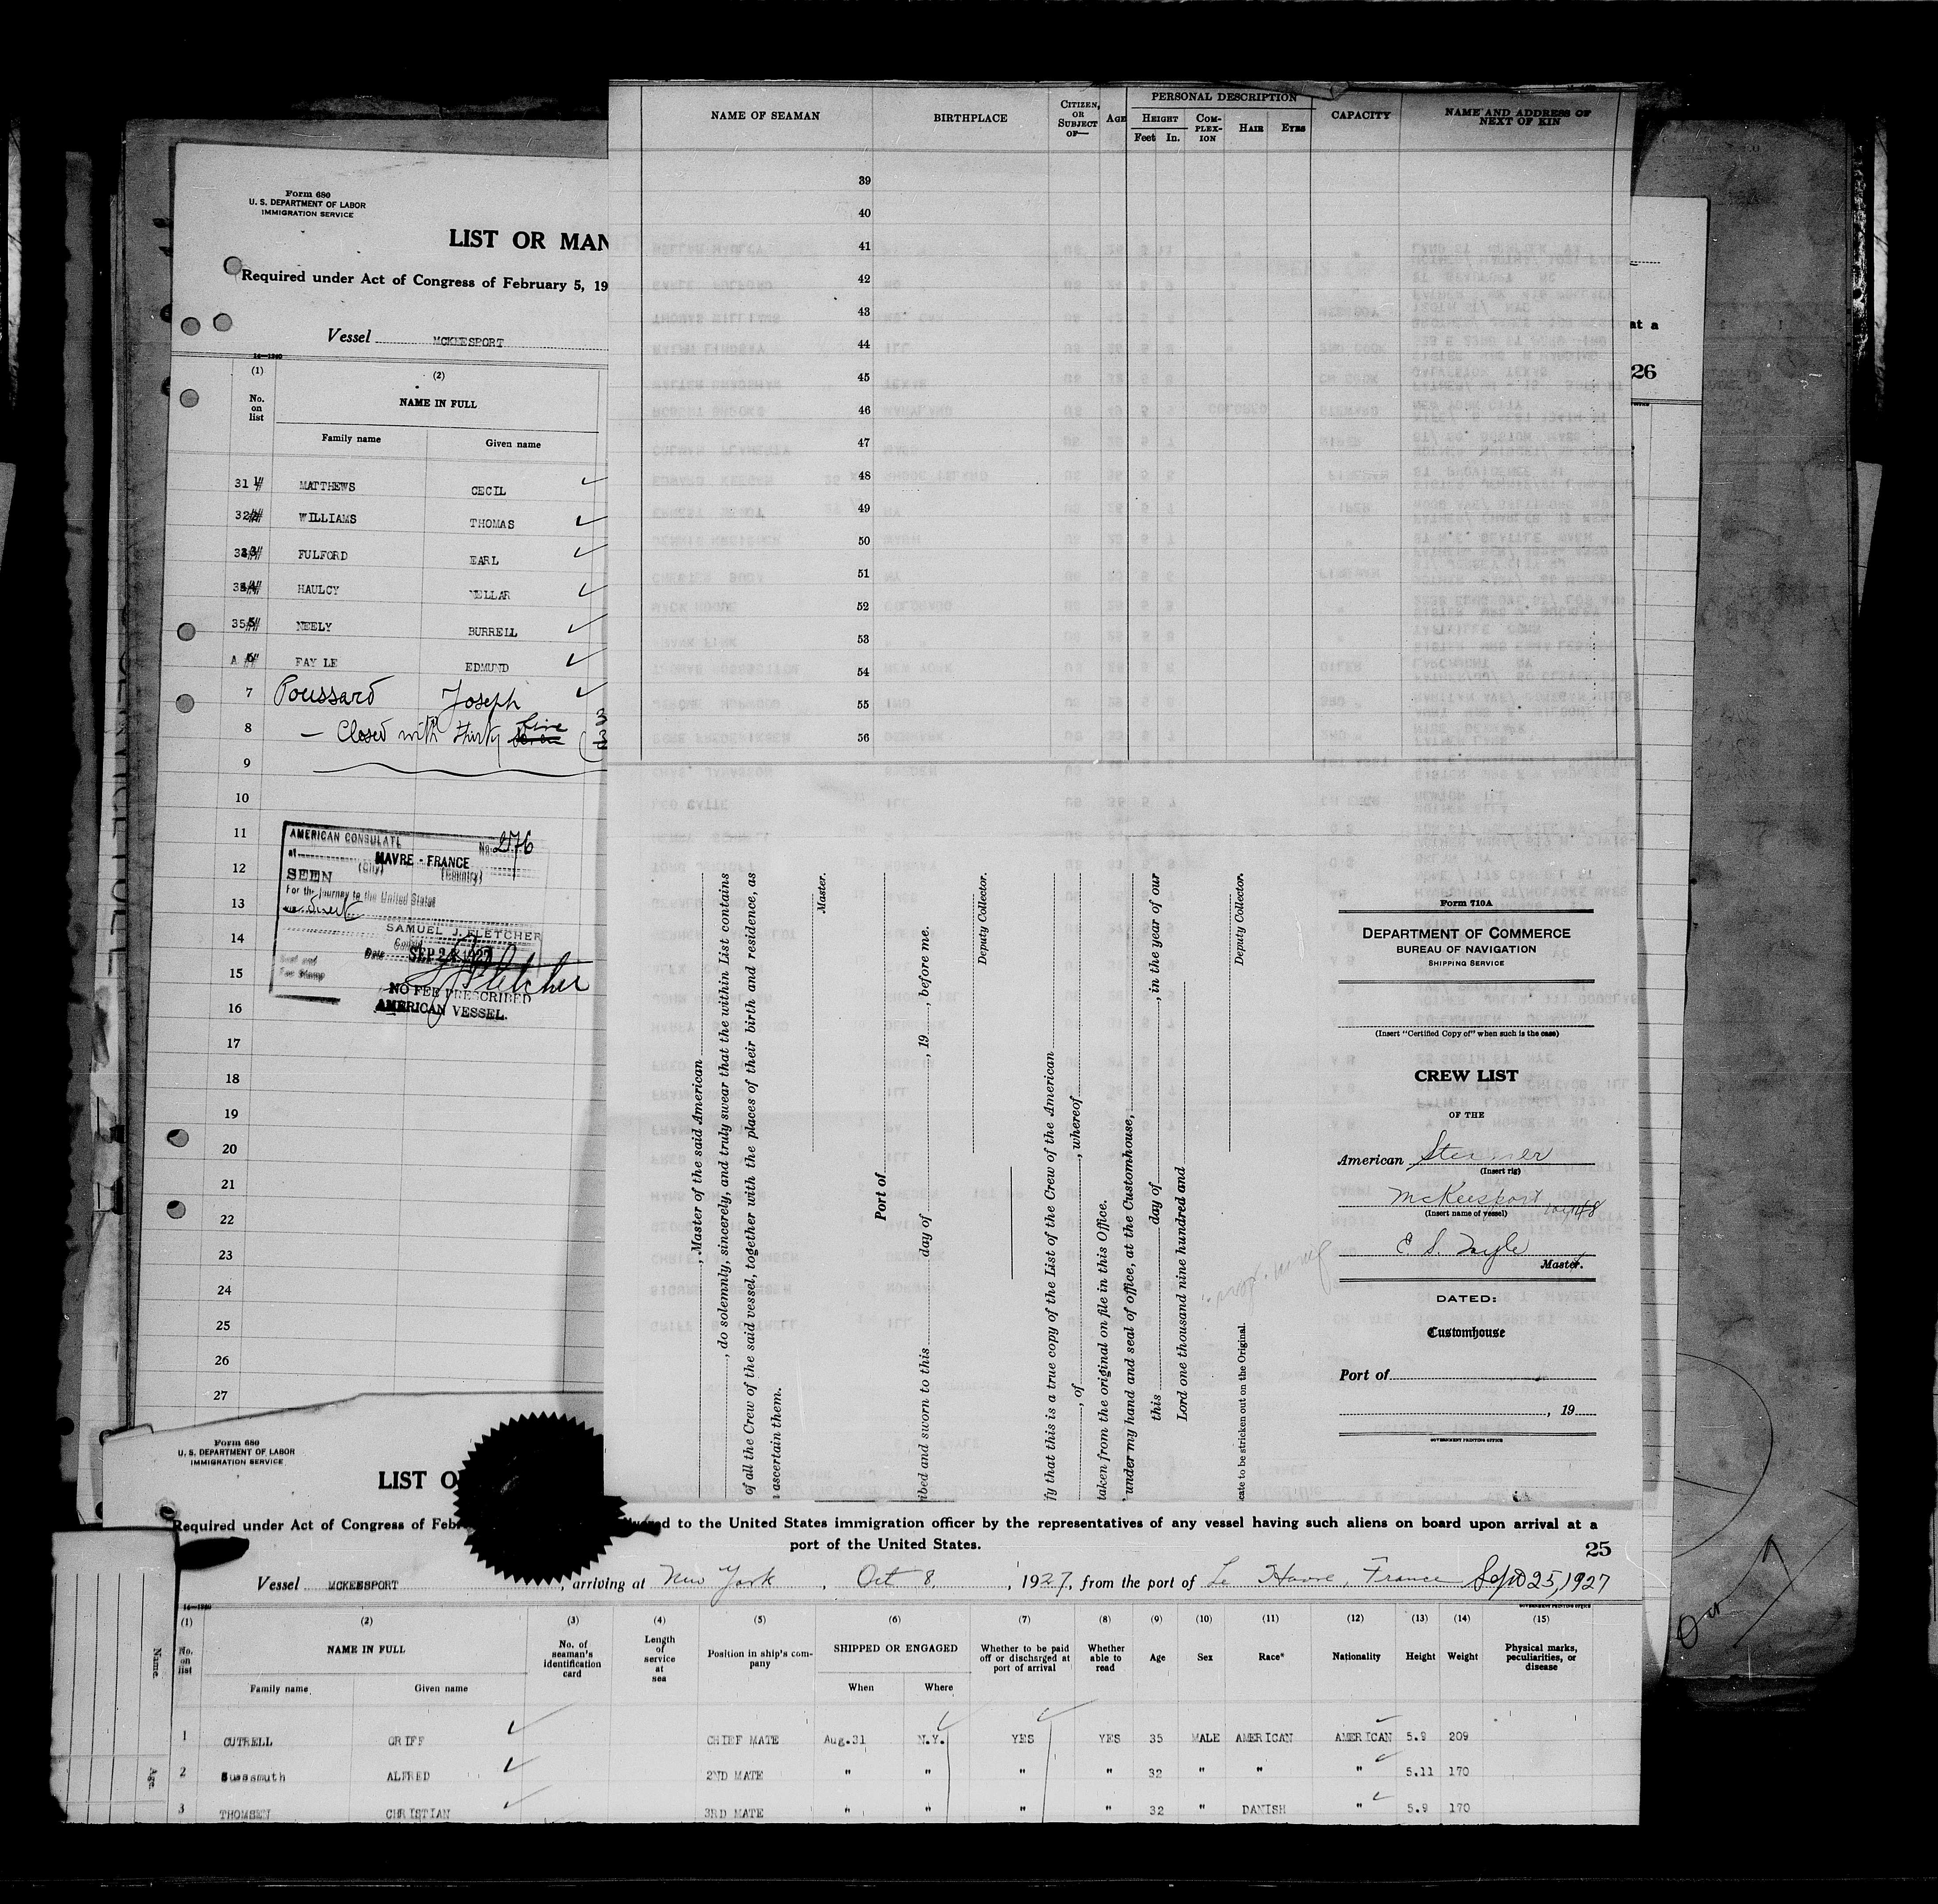 Form 680
U. S. DEPARTMENT OF LABOR
IMMIGRATION SERVICE
LIST OR MAN
Required under Act of Congress of February 5, 19
Vessel MCKEESPORT
14—1240
(1) (2)
No. on list
NAME IN FULL
Family name Given name
31 MATTHEWS CECIL
32 WILLIAMS THOMAS
FULFORD EARL
HAULCY
35 NEELY BURRELL
A FAY LE EDMUND
7 Poussard Joseph
8 — Closed with thirty five
9
10
11
12
13
14
15
16
17
18
19
20
21
22
23
24
25
26
27
AMERICAN CONSULATE
No. 2176
at HAVRE - FRANCE
(City) (Country)
SEEN
For the journey to the United States
SAMUEL J. FLETCHER
Consul
Date SEP 24 1927
Fletcher
NO FEE PRESCRIBED
AMERICAN VESSEL.
NAME OF SEAMAN
BIRTHPLACE
CITIZEN, OR SUBJECT OF—
AGE
PERSONAL DESCRIPTION
HEIGHT
Feet In.
COM-PLEX-ION
HAIR
EYES
CAPACITY
NAME AND ADDRESS OF NEXT OF KIN
39
40
41
42
43
44
45
46
47
48
49
50
51
52
53
54
55
56
at a
26
, Master of the said American
, do solemnly, sincerely, and truly swear that the within List contains
of all the Crew of the said vessel, together with the places of their birth and residence, as
ascertain them.
Master.
Port of
ibed and sworn to this day of , 19 , before me.
Deputy Collector.
fy that this is a true copy of the List of the Crew of the American
, of , whereof
taken from the original on file in this Office.
under my hand and seal of office, at the Customhouse,
this day of , in the year of our
Lord one thousand nine hundred and
Deputy Collector.
cate to be stricken out on the Original.
Form 710A
DEPARTMENT OF COMMERCE
BUREAU OF NAVIGATION
SHIPPING SERVICE
(Insert "Certified Copy of" when such is the case)
CREW LIST
OF THE
American Steamer
(Insert rig)
McKeesport
(Insert name of vessel)
Master.
DATED:
Customhouse
Port of
, 19
GOVERNMENT PRINTING OFFICE
Form 680
U. S. DEPARTMENT OF LABOR
IMMIGRATION SERVICE
LIST O
Required under Act of Congress of Feb ed to the United States immigration officer by the representatives of any vessel having such aliens on board upon arrival at a
port of the United States.
25
Vessel MCKEESPORT, arriving at New York, Oct 8, 1927, from the port of Le Havre, France Sept 25, 1927
14—1240
GOVERNMENT PRINTING OFFICE
(1) (2) (3) (4) (5) (6) (7) (8) (9) (10) (11) (12) (13) (14) (15)
No. on list
NAME IN FULL
Family name Given name
No. of seaman's identification card
Length of service at sea
Position in ship's com-pany
SHIPPED OR ENGAGED
When Where
Whether to be paid off or discharged at port of arrival
Whether able to read
Age
Sex
Race*
Nationality
Height
Weight
Physical marks, peculiarities, or disease
1 CUTRELL GRIFF CHIEF MATE Aug.31 N.Y. YES YES 35 MALE AMERICAN AMERICAN 5.9 209
2 Sussmuth ALFRED 2ND MATE " " " " 32 " " " 5.11 170
3 THOMSEN CHRISTIAN 3RD MATE " " " " 32 " DANISH " 5.9 170
Name.
Age.